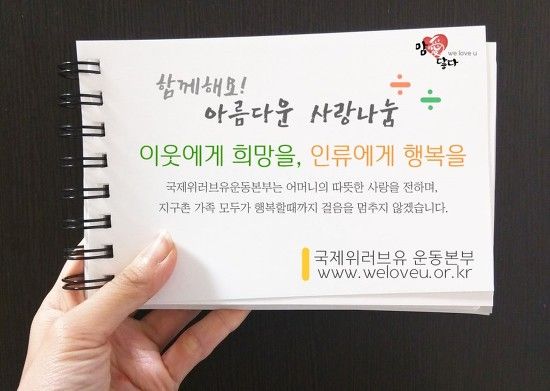 맘 닿다
we love u
함께해요!
아름다운 사랑나눔
이웃에게 희망을, 인류에게 행복을
국제위러브유운동본부는 어머니의 따뜻한 사랑을 전하며,
지구촌 가족 모두가 행복할때까지 걸음을 멈추지 않겠습니다.
국제위러브유 운동본부
www.weloveu.or.kr